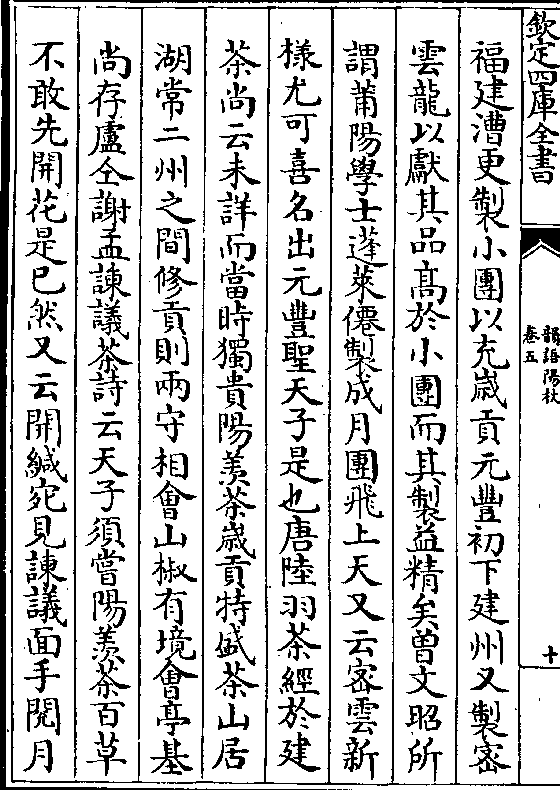 欽定四庫全書
韻語陽秋
卷五
十
福建漕更製小團以充歳貢元豐初下建州又製密
雲龍以獻其品髙於小團而其製益精矣曽文昭所
謂莆陽學士蓬萊僊製成月團飛上天又云密雲新
様尤可喜名出元豐聖天子是也唐陸羽茶經於建
茶尚云未詳而當時獨貴陽羡茶歳貢特盛茶山居
湖常二州之間修貢則兩守相會山椒有境會亭基
尚存盧仝謝孟諫議茶詩云天子須嘗陽羨茶百草
不敢先開花是已然又云開緘宛見諫議面手閲月